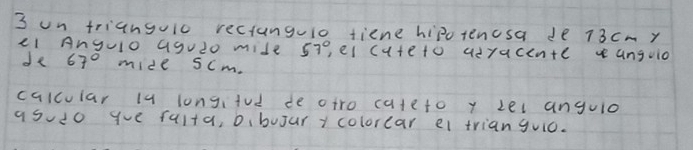 3 un triangulo rectangulo tiene hipotenosa de 13cm y
el Angulo agudo mide 57°, el cateto adyacente angulo
de 67° mide 5cm.
calcular la longitud de otro cateto y del angulo
agudo que falta, bibujar y colorear el triangulo.